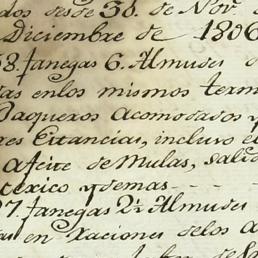 dos desde 30. de Nov.
Diciembre de 1806
8. fanegas 6. Almudes
as enlos mismos term
Baqueros Acomodados y
res Estancias, incluso e
Afeite de Mulas, salid
exico y demas
7. fanegas 2½ Almudes
en Raciones delos a